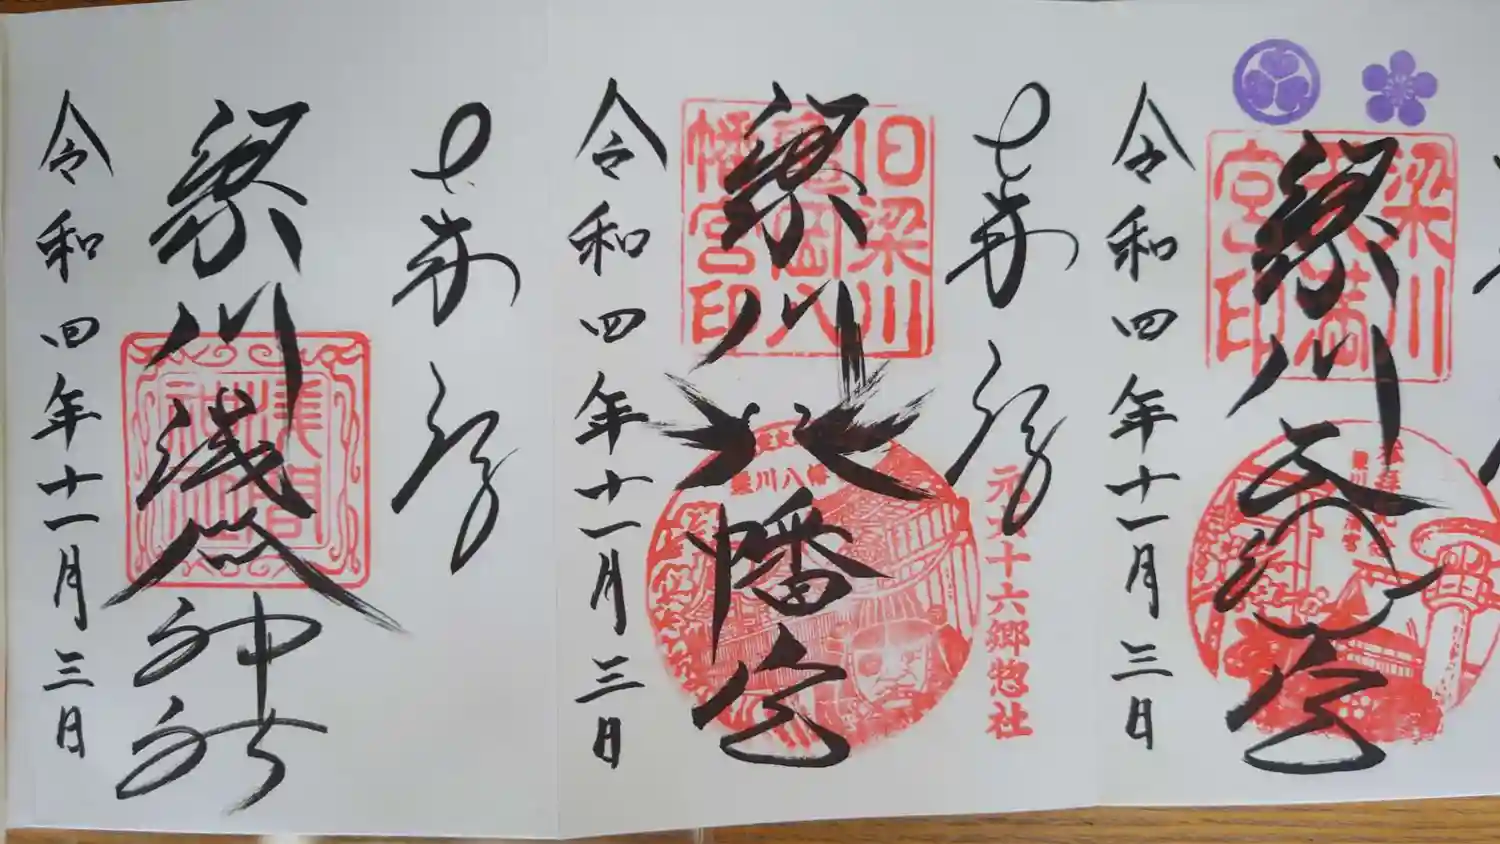 奉拝
梁川天満宮
令和四年十一月三日
梁川
天満
宮印
奉拝
梁川八幡宮
令和四年十一月三日
旧梁川
亀岡八
幡宮印
梁川八幡
十六郷惣社
奉拝
梁川浅間神社
令和四年十一月三日
浅間
神社